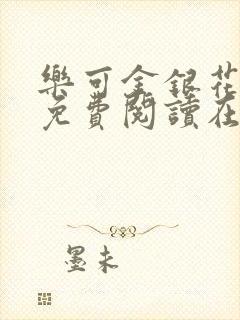 樂可金銀花
免費閱讀在
墨未